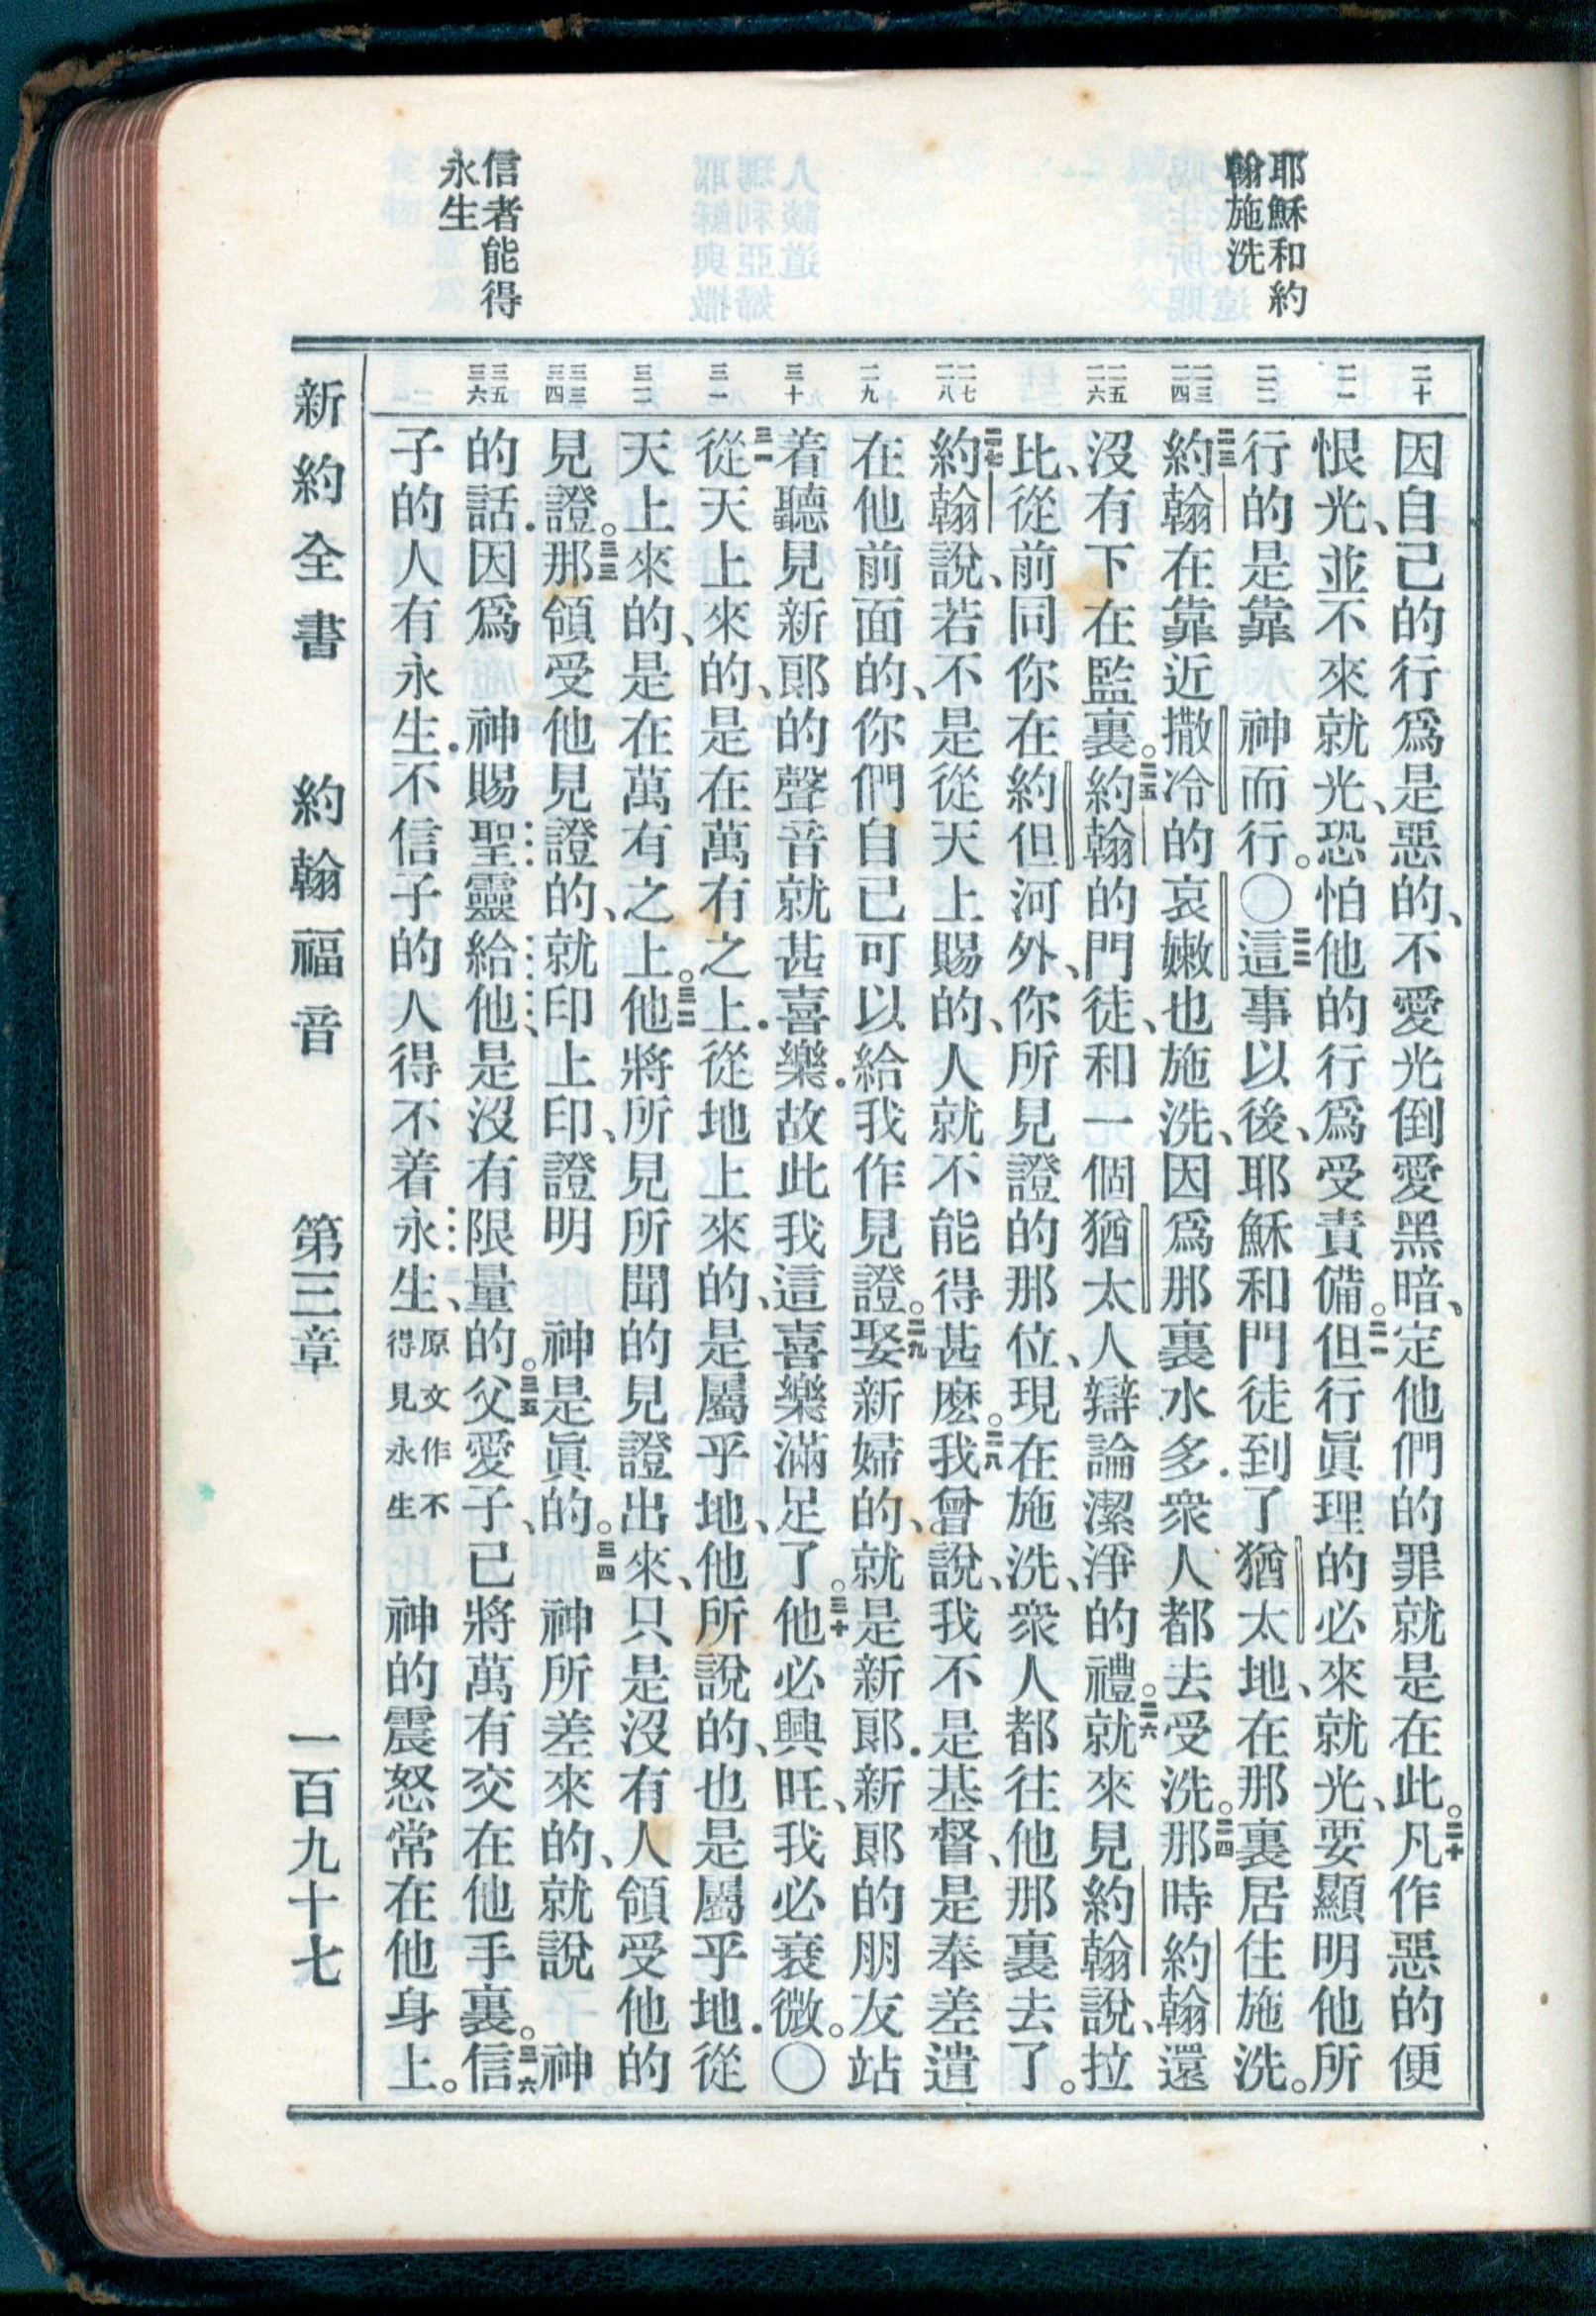 耶穌和約
翰施洗
信者能得
永生
二十
二一
二二
二三
二四
二五
二六
二七
二八
二九
三十
三一
三二
三三
三四
三五
三六
因自己的行爲是惡的、不愛光倒愛黑暗、定他們的罪就是在此。二十凡作惡的便
恨光、並不來就光、恐怕他的行爲受責備。二一但行眞理的必來就光、要顯明他所
行的是靠 神而行。〇二二這事以後、耶穌和門徒到了猶太地、在那裏居住施洗。
二三約翰在靠近撒冷的哀嫩也施洗、因爲那裏水多．衆人都去受洗。二四那時約翰還
沒有下在監裏。二五約翰的門徒、和一個猶太人辯論潔淨的禮。二六就來見約翰說、拉
比、從前同你在約但河外、你所見證的那位、現在施洗、衆人都往他那裏去了。
二七約翰說、若不是從天上賜的、人就不能得甚麽。二八我曾說、我不是基督、是奉差遣
在他前面的、你們自己可以給我作見證。二九娶新婦的、就是新郎．新郎的朋友站
着聽見新郎的聲音就甚喜樂．故此我這喜樂滿足了。三十他必興旺、我必衰微。〇
三一從天上來的、是在萬有之上．從地上來的、是屬乎地、他所說的、也是屬乎地．從
天上來的、是在萬有之上。三二他將所見所聞的見證出來、只是沒有人領受他的
見證。三三那領受他見證的、就印上印、證明 神是眞的。三四 神所差來的、就說 神
的話．因爲 神賜聖靈給他、是沒有限量的。三五父愛子、已將萬有交在他手裏。三六信
子的人有永生．不信子的人得不着永生、原文作不得見永生 神的震怒常在他身上。
新約全書 約翰福音 第三章 一百九十七